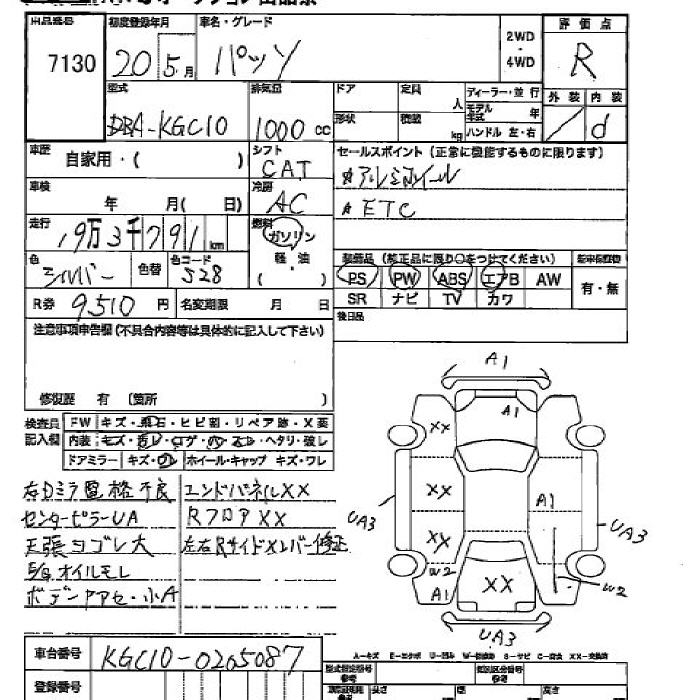 出品番号
7130
初度登録年月
20 5 月
車名・グレード
パッソ
2WD
・
4WD
評価点
R
型式
DBA-KGC10
排気量
1000 cc
ドア
定員
人
ディーラー・並行
モデル年式 年
形状
積載
kg
ハンドル 左・右
外装 内装
d
車歴
自家用・( )
シフト
CAT
セールスポイント (正常に機能するものに限ります)
アルミホイール
ETC
車検
年 月( 日)
冷房
AC
走行
19万3千791 km
燃料
ガソリン
軽・油
色
シルバー
色替
色コード
S28
装備品 (純正品に限り○をつけてください)
PS PW ABS エアB AW
SR ナビ TV カワ
有・無
R券 9510 円
名変期限 月 日
後日品
注意事項申告欄(不具合内容等は具体的に記入して下さい)
修復歴 有 〔箇所 〕
検査員
記入欄
FW キズ・飛石・ヒビ割・リペア跡・X要
内装
ドアミラー キズ・ワレ ホイール・キャップ キズ・ワレ
格 不良
エンドパネルXX
センターピラーUA
RフロアXX
天張ヨゴレ大
左右Rサイドメンバー修正
E/g オイルモレ
小A
車台番号
KGC10-0205087
登録番号
A1
A1
XX
XX
A1
UA3
UA3
XX
W2
A1
XX
W2
UA3
A-キズ E-エクボ U-凹み
XX-交換済
型式指定番号
類別区分番号
長さ
幅
高さ